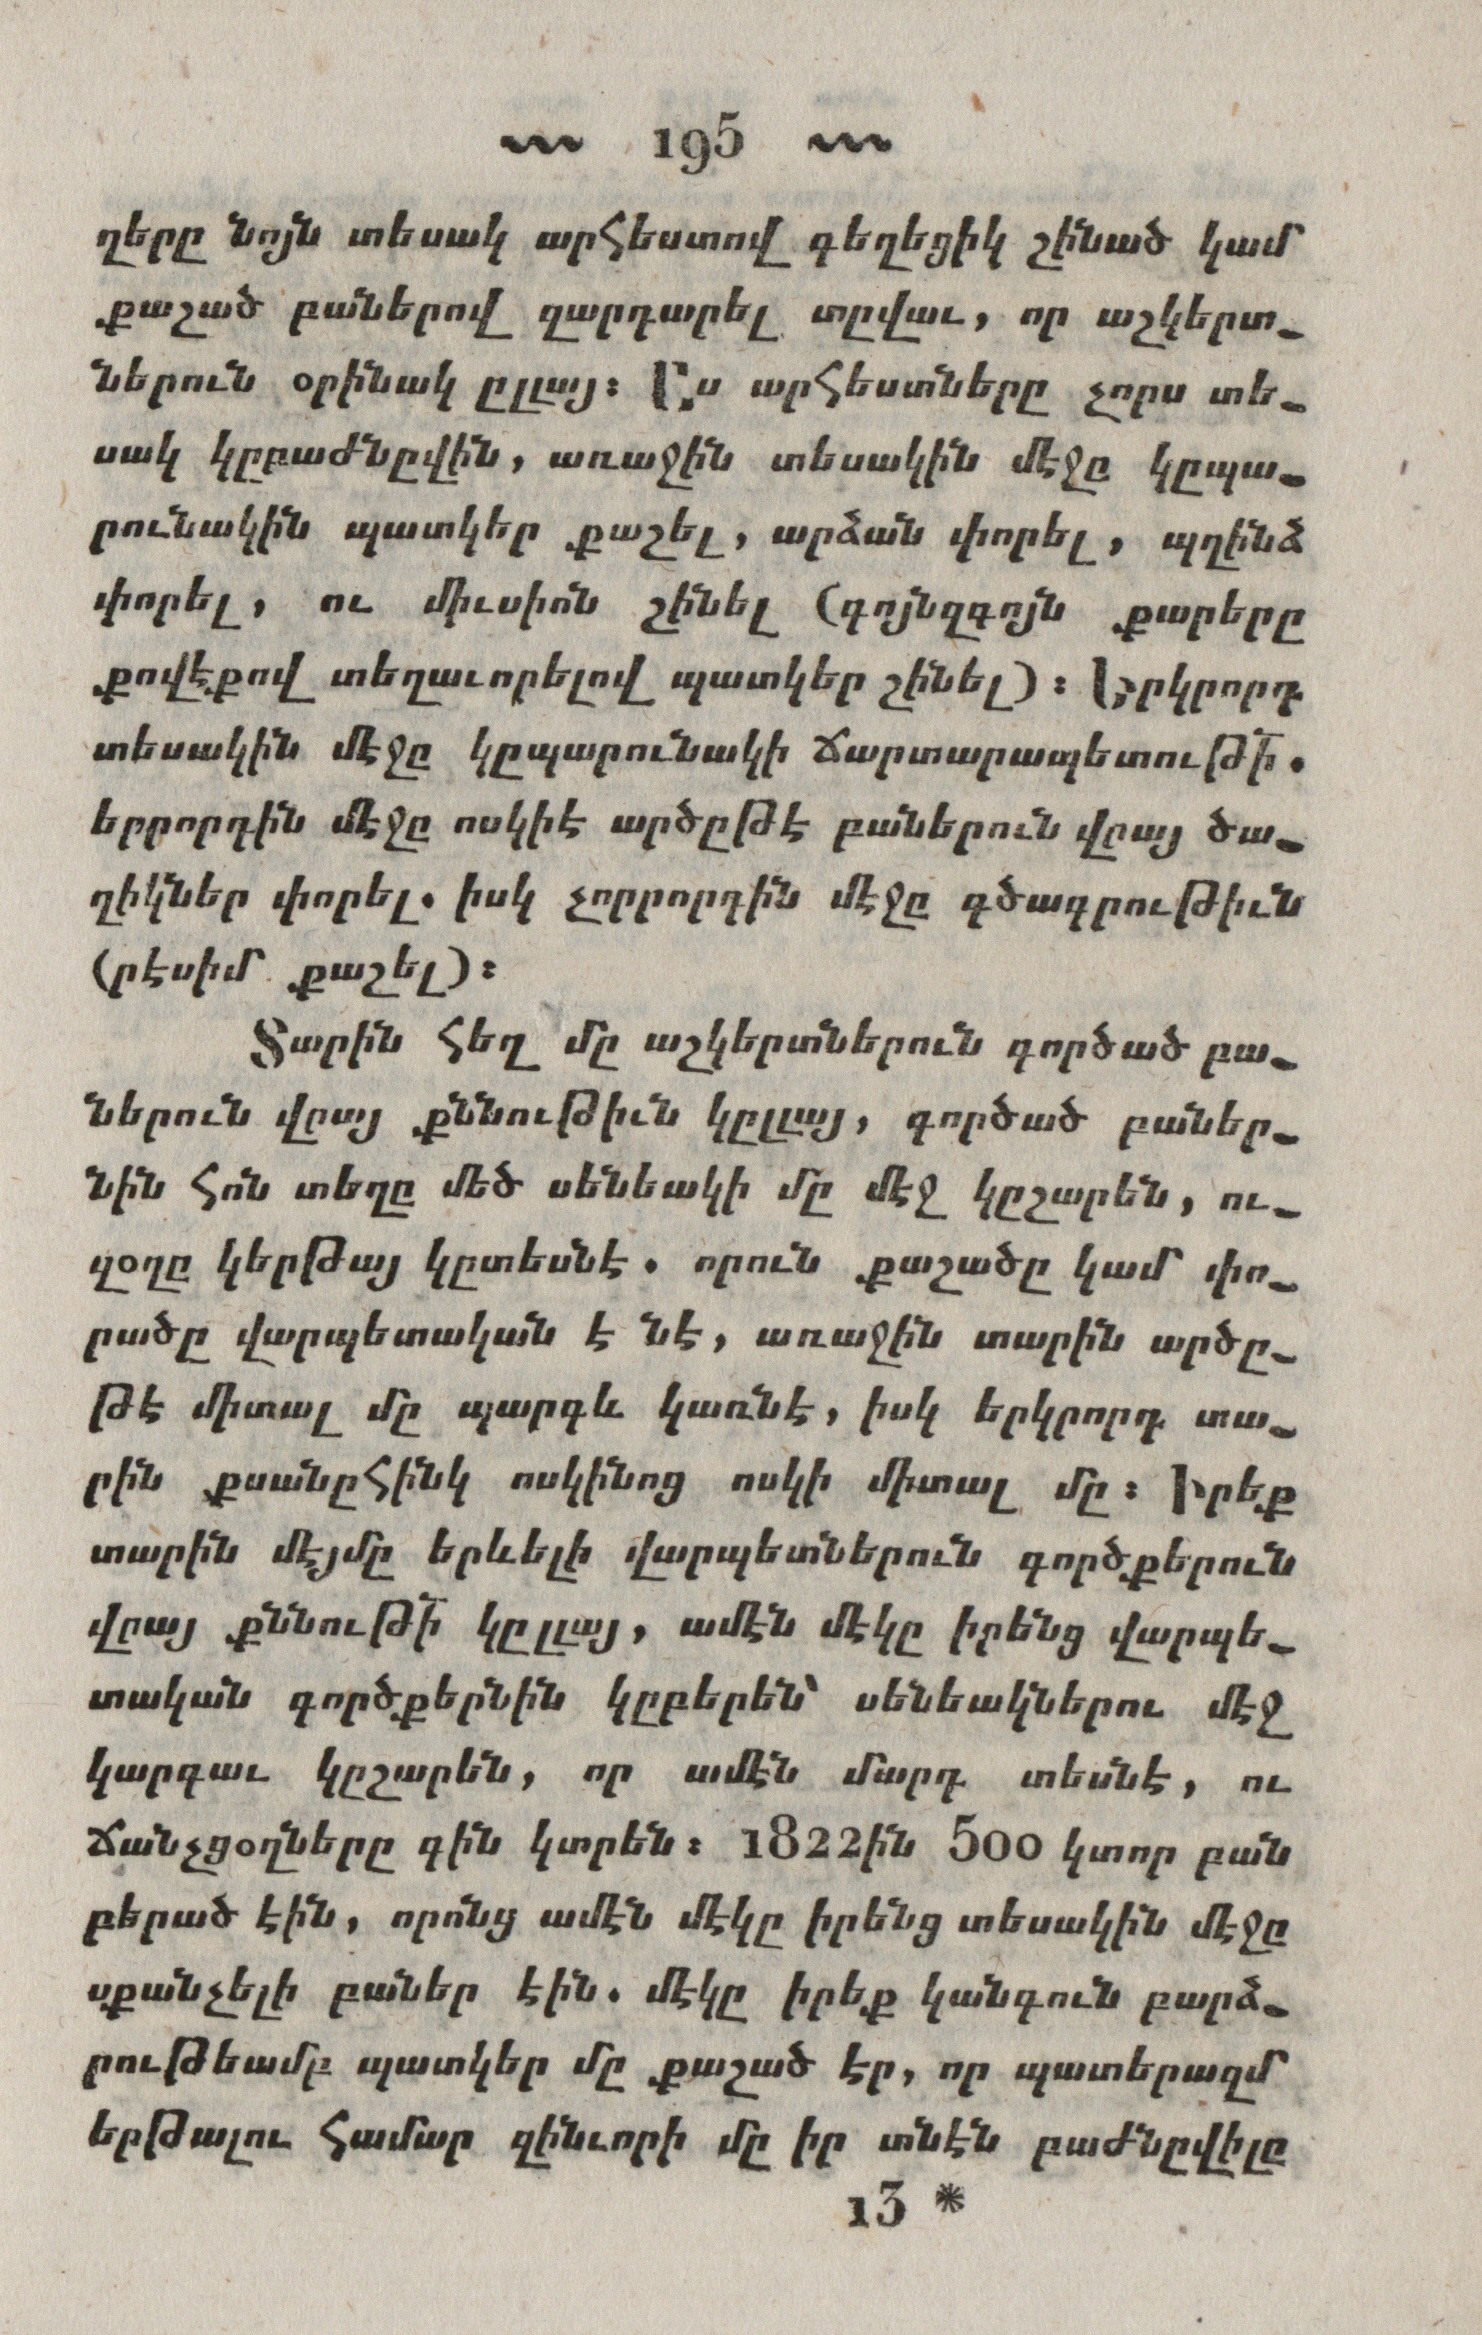 195
ղերը նոյն տեսակ արհեստով գեղեցիկ շինած կամ
քաշած բաներով զարդարել տըվաւ, որ աշկերտ֊
ներուն օրինակ ըլլայ։ Ըս արհեստները չորս տե֊
սակ կըբաժնըվին, առաջին տեսակին մէջը կըպա֊
րունակին պատկեր քաշել, արձան փորել, պղինձ
փորել, ու միւսիոն շինել (գոյնզգոյն քարերը
քովէքով տեղաւորելով պատկեր շինել)։ Երկրորդ
տեսակին մէջը կըպարունակի ճարտարապետութի՛.
երրորդին մէջը ոսկիէ արծըթէ բաներուն վըայ ծա֊
ղիկներ փորել. իսկ չորրորդին մէջը գծագրութիւն
(րէսիմ քաշել)։
Տարին հեղ մը աշկերտներուն գործած բա֊
ներուն վըայ քննութիւն կըլլայ, գործած բաներ֊
նին հոն տեղը մեծ սենեակի մը մէջ կըշարեն, ու֊
զօղը կերթայ կըտեսնէ. որուն քաշածը կամ փո֊
րածը վարպետական է նէ, առաջին տարին արծը֊
թէ միտալ մը պարգև կառնէ, իսկ երկրորդ տա֊
րին քսանըհինկ ոսկինոց ոսկի միտալ մը։ Իրեք
տարին մէյմը երևելի վարպետներուն գործքերուն
վըայ քննութի՛ կըլլայ, ամէն մէկը իրենց վարպե֊
տական գործքերնին կըբերեն՝ սենեակներու մէջ
կարգաւ կըշարեն, որ ամէն մարդ տեսնէ, ու
ճանչցօղները գին կտրեն։ 1822ին 500 կտոր բան
բերած էին, որոնց ամէն մէկը իրենց տեսակին մէջը
սքանչելի բաներ էին. մէկը իրեք կանգուն բարձ֊
րութեամբ պատկեր մը քաշած էր, որ պատերազմ
երթալու համար զինւորի մը իր տնէն բաժնըվիլը
13 *